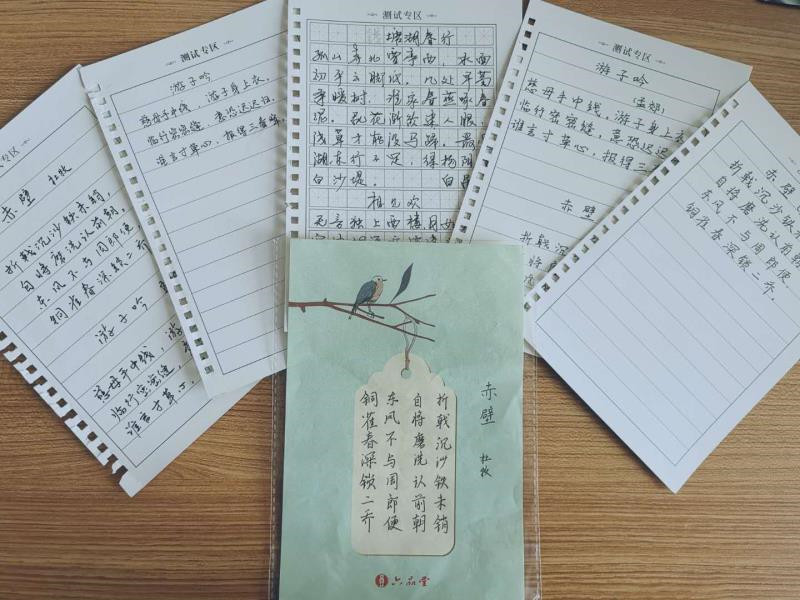 测试专区
赤壁 杜牧
折戟沉沙铁未销,
自将磨洗认前朝,
东风不与周郎便
铜雀春深锁二乔
游子吟
慈母手中线,游
临行密密缝,
谁言寸草心,
测试专区
游子吟
慈母手中线,游子身上衣,
临行密密缝,意恐迟迟归,
谁言寸草心,报得三春晖。
测试专区
塘湖春行
孤山寺北贾亭西,水面
初平云脚低,几处早莺
争暖树,谁家春燕啄春
泥。乱花渐欲迷人眼
浅草才能没马蹄。最
湖东行不足,绿杨阴
白沙堤。
相见欢
无言独上西楼月如
测试专区
游子吟
慈母手中线,游子身上衣
临行密密缝,意恐迟迟
谁言寸草心,报得三
赤壁
折戟沉
自将
赤壁
折戟沉沙铁
自将磨洗认前朝
东风不与周郎便
铜雀春深锁二乔.
赤壁
杜牧
折戟沉沙铁未销
自将磨洗认前朝
东风不与周郎便
铜雀春深锁二乔
六品堂